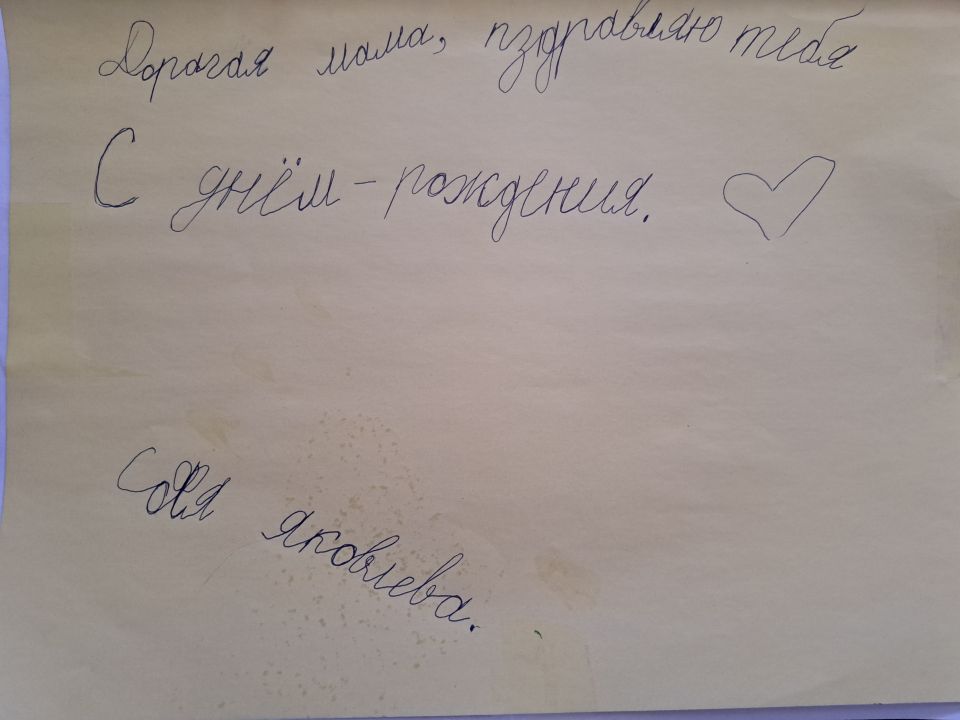 Дорагая мама, пздравляю тебя
С днём - рождения.
Соня яковлева.